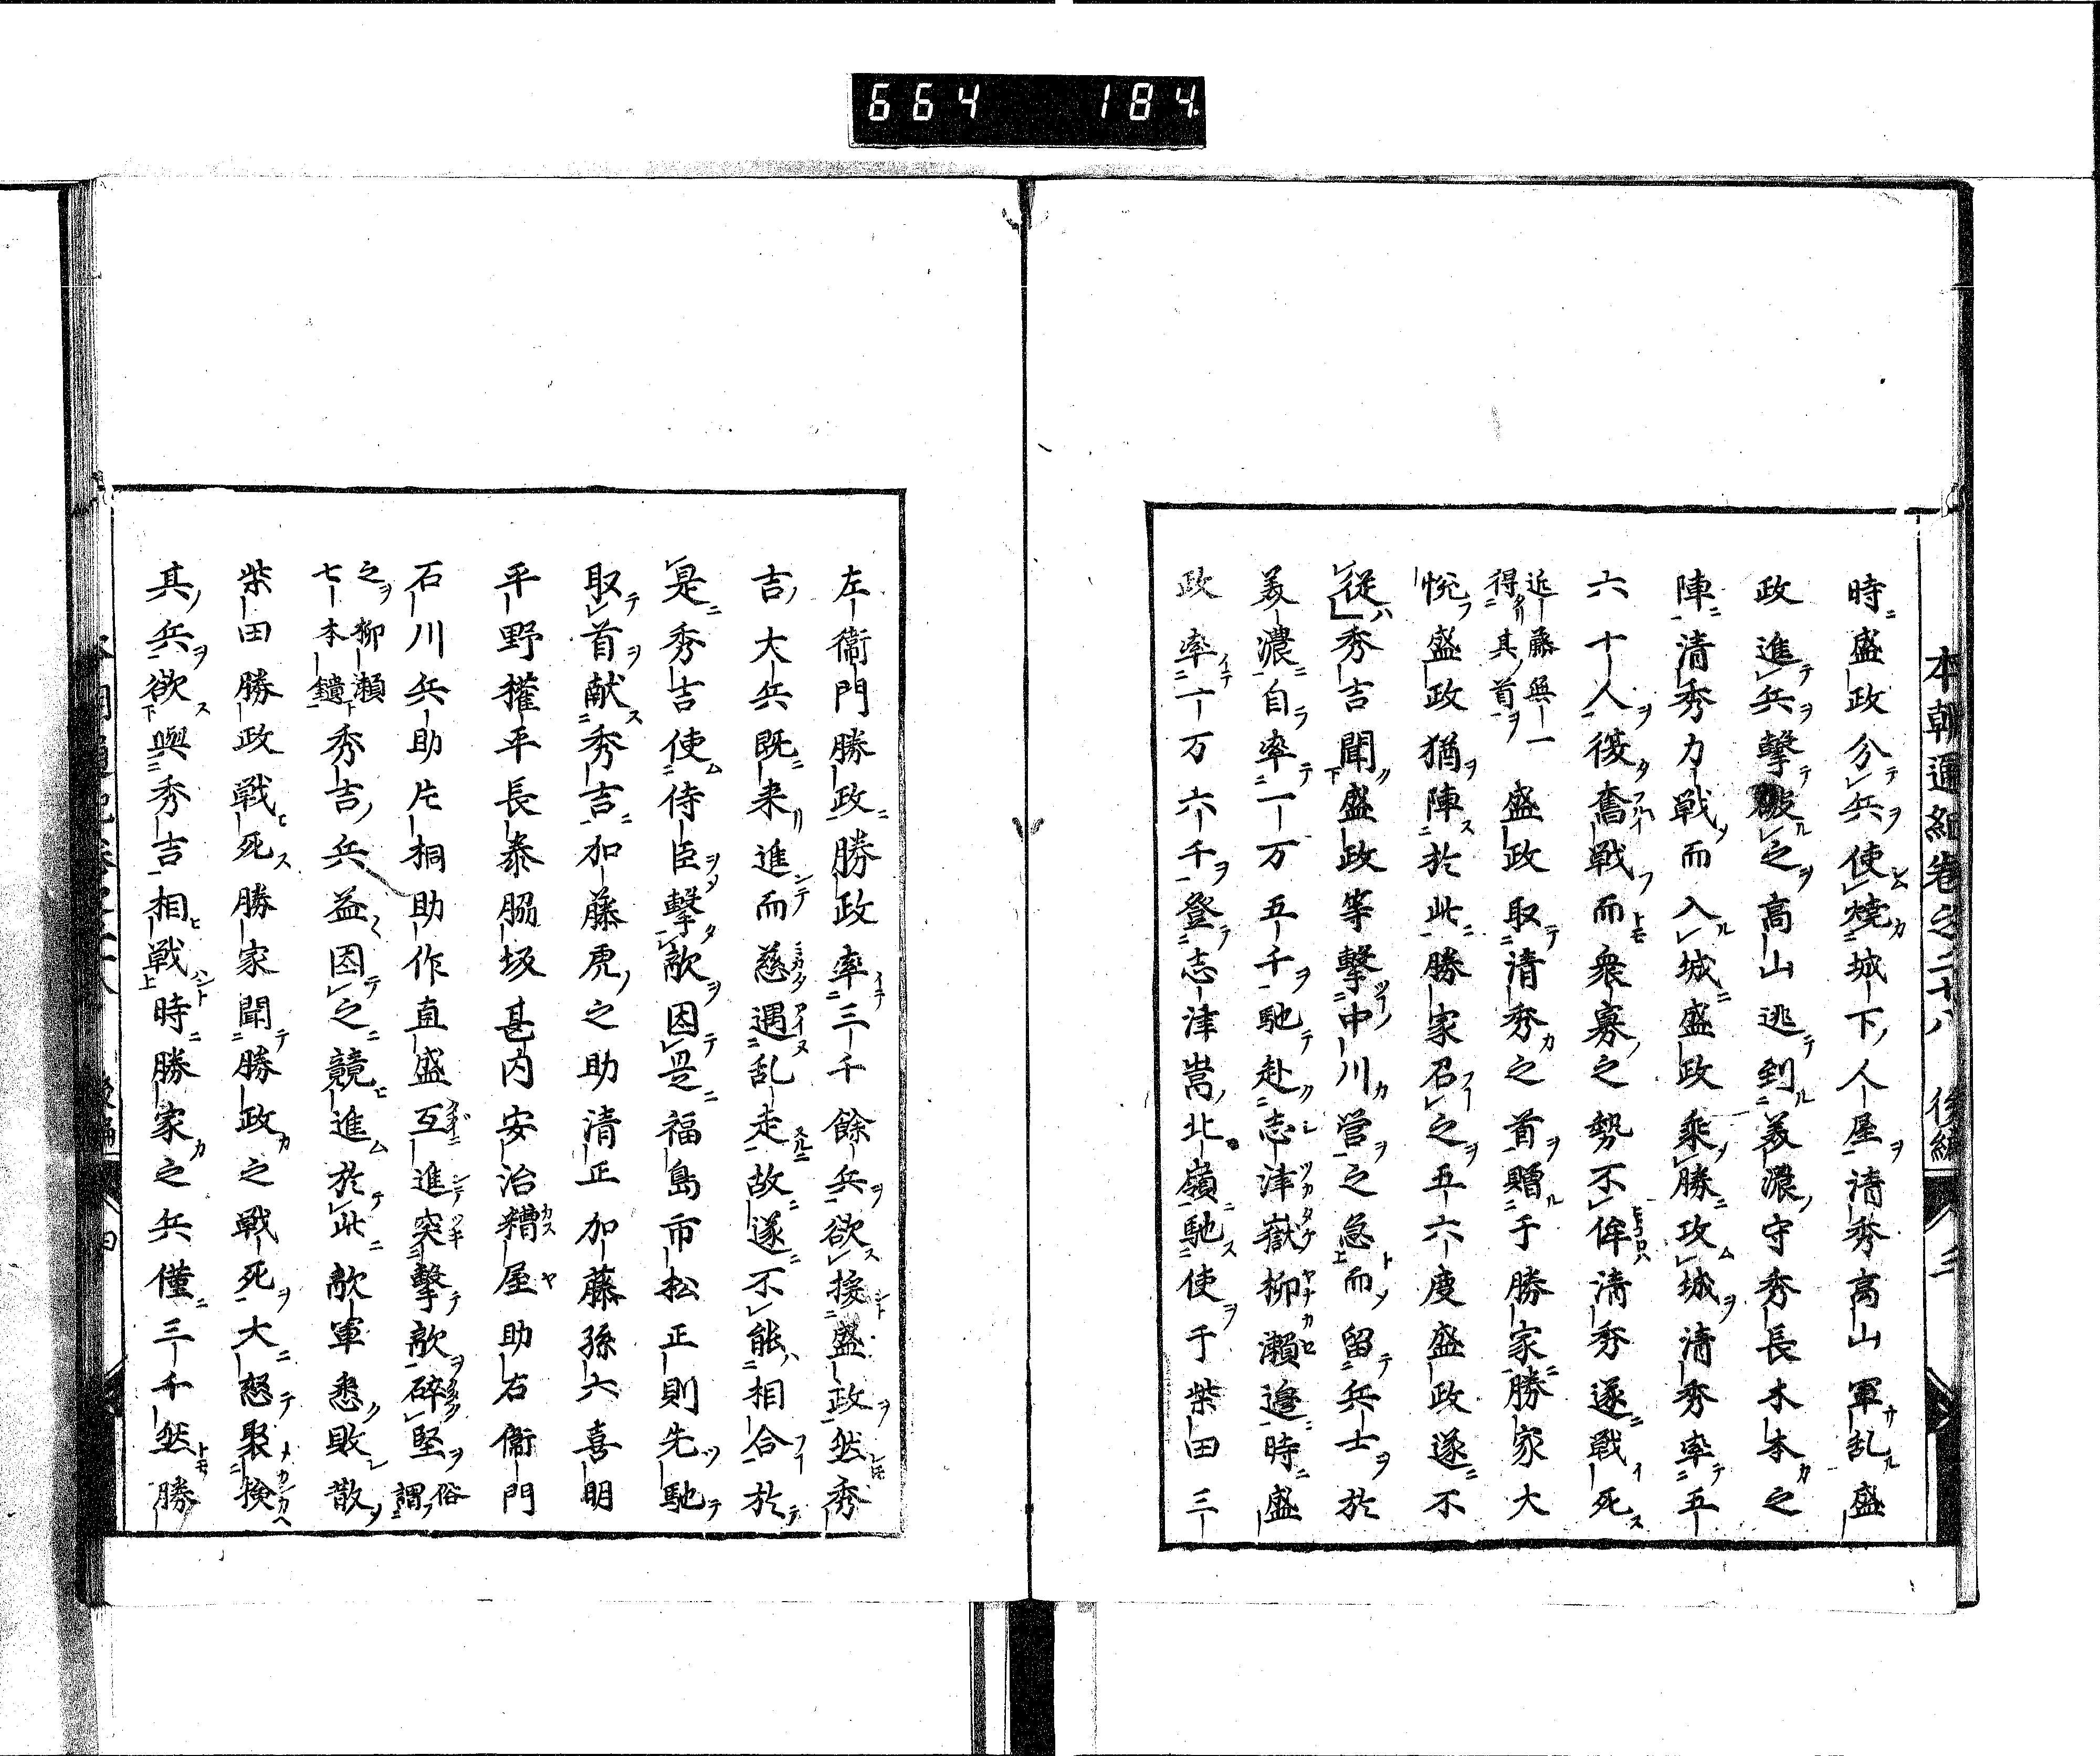 664 184
本朝通紀卷之二十八 後編 三
時盛政分兵使燒城下人屋清秀高山軍乱盛
政進兵擊破之高山逃到美濃守秀長木本之
陣清秀力戰而入城盛政乘勝攻城清秀率五
六十人復奮戰而衆寡之勢不侔清秀遂戰死
近藤無一得其首盛政取清秀之首贈于勝家勝家大
悅盛政猶陣於此勝家召之五六度盛政遂不
從秀吉聞盛政等擊中川營之急而留兵士於
美濃自率一万五千馳赴志津嶽柳瀬邉時盛
政率一万六千登志津嵩北嶺馳使于柴田三
左衞門勝政勝政率三千餘兵欲援盛政然秀
吉大兵既来進而慈遇乱走故遂不能相合於
是秀吉使侍臣擊敵因是福島市松正則先馳
取首献秀吉加藤虎之助清正加藤孫六喜明
平野權平長泰脇坂甚内安治糟屋助右衞門
石川兵助片桐助作直盛互進突擊敵碎堅俗謂
之柳瀬七本鎗秀吉兵益因之競進於此敵軍悉敗散
柴田勝政戰死勝家聞勝政之戰死大怒聚検
其兵欲與秀吉相戰時勝家之兵僅三千然勝